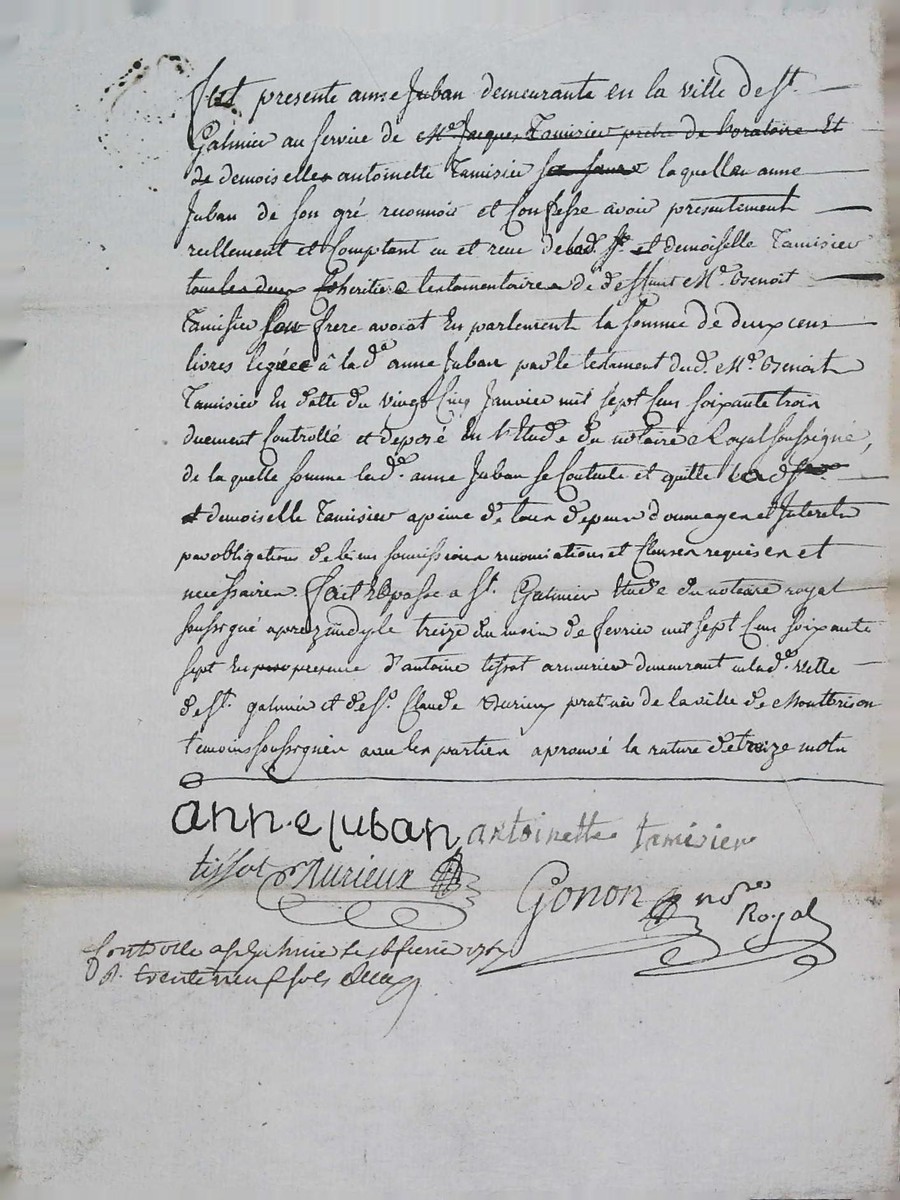 fut presente anne Juban demeurante en la ville de St.
Galmier au service de Mre Jacques Tamisier pretre de l'oratoire Et
de demoiselles antoinette Tamisier sa sœur laquelle anne
Juban de son gré reconnoit et Confesse avoir presentement
reellement et Comptant eu et reçu de lad. Sr. et demoiselle Tamisier
tous les deux Coheritiere testamentaires de deffunt Me. Benoit
Tamisier son frere avocat En parlement la somme de deux cens
livres leguée à la de anne Juban par le testament dud. Me. Benoit
Tamisier En datte du vingt Cinq Janvier mil sept Cens soixante trois
duement Controllé et deposé En l'Etude du notaire Royal soussigné,
de la quelle somme lade. anne Juban se Contente et quitte lad Sr.
et demoiselle Tamisier a peine de tous depens dommages et Interets
par obligations de biens soumissions renonciations et Clauses requises et
necessaires. fait et passé a St. Galmier Etude du notaire royal
soussigné apres midy le treize du mois de fevrier mil sept Cens soixante
sept En presence d'antoine tissot armurier demeurant en lade. ville
de St. galmier et de Sr. Claude Durieux praticien de la ville de Montbrison
temoins soussignés avec les parties aprouvé la rature de treize mots
anne Juban antoinette tamisier
tissot Durieux
Gonon nore Royal
Controllé a St Galmier le fevrier 1767
R. trente neuf sols